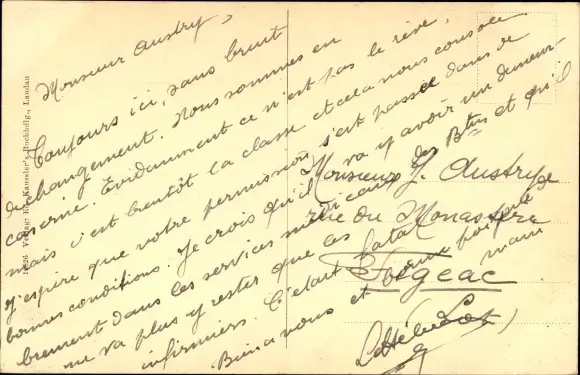 Monsieur Austry,
Toujours ici, sans bruit
de changement. Nous sommes en
caserne. Evidemment ce n'est pas le rêve,
mais c'est bientôt la classe et cela nous console
J'espère que votre permission s'est passée dans de
bonnes conditions. Je crois qu'il va y avoir un
brement dans les services médicaux des Btns et qu'il
ne va plus y rester que les
infirmiers. C'était fatal
Bien à vous et bonne poignée
main
Monsieur J. Austry
rue du Monastère
Figeac
Lot
Verlag: Ed. Kaussler's Buchhdlg., Landau